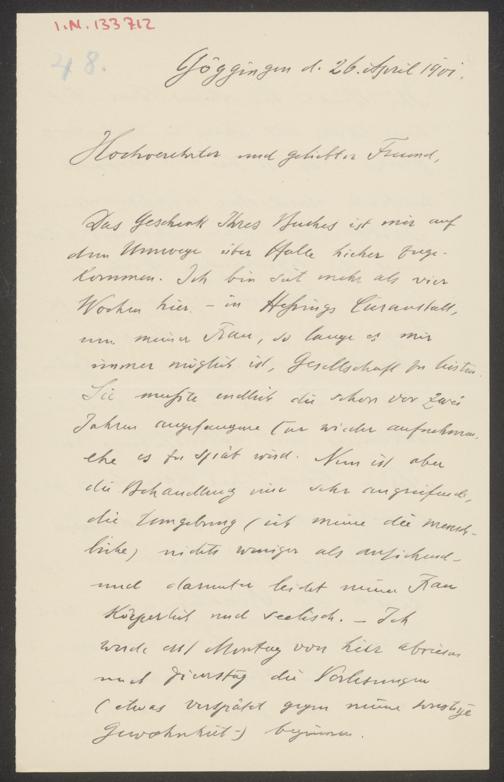 I.N. 133712
48.
Göggingen d. 26. April 1901.
Hochverehrter und geliebter Freund,
Das Geschenk Ihres Buches ist mir auf
dem Umwege über Halle hieher zuge-
kommen. Ich bin seit mehr als vier
Wochen hier – in Hessings Curanstalt,
um meiner Frau, so lange es mir
immer möglich ist, Gesellschaft zu leisten.
Sie mußte endlich die schon vor zwei
Jahren angefangene Cur wieder aufnehmen,
ehe es zu spät wird. Nun ist aber
die Behandlung eine sehr angreifende,
die Umgebung (ich meine die mensch-
liche) nichts weniger als anziehend –
und darunter leidet meine Frau
körperlich und seelisch. – Ich
werde am Montag von hier abreisen
und Dienstag die Vorlesungen
(etwas verspätet gegen meine sonstige
Gewohnheit) beginnen.